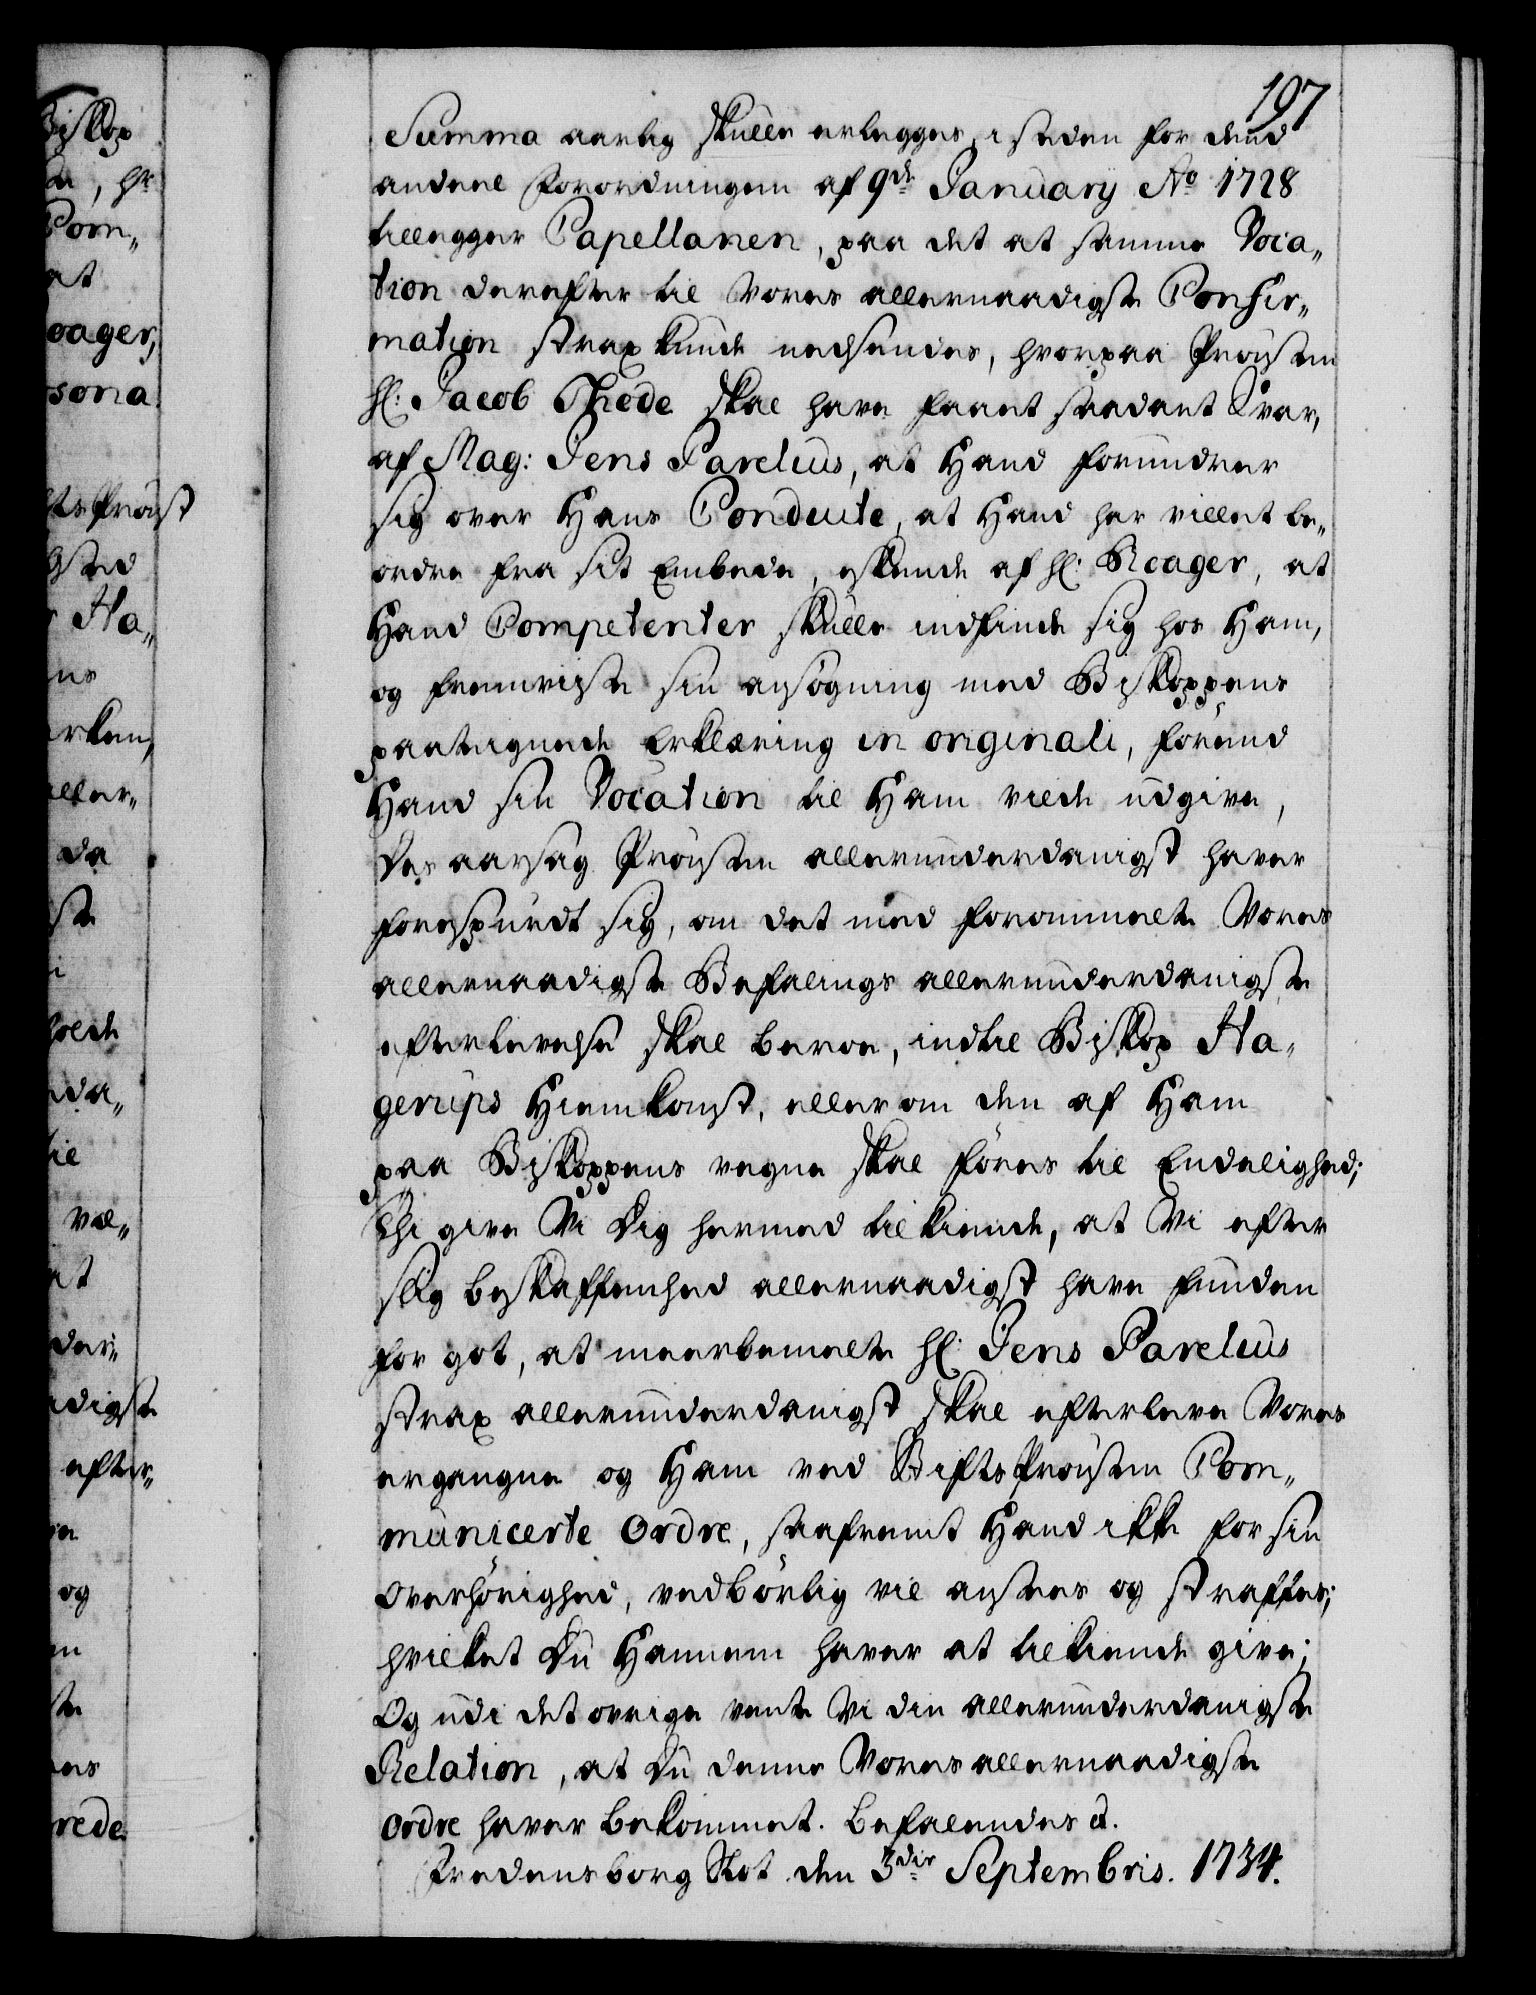 197
Summa aarlig skulle erlegges, i steden for dend
andeel Forordningen af 9de January Ao 1728
tillegger Capellanen, paa det at samme Voca„
tion derefter til Vores allernaadigste Confir„
mation strax kunde nedsendes, hvorpaa Provsten
Hl: Jacob Thode skal have faaet saadant Svar,
af Mag: Jens Parelius, at Hand forundrer
sig over Hans Conduite, at Hand har villet be„
ordre fra sit Embede, eskende af Hl: Roager, at
Hand Competenter skulle indfinde sig hos Ham,
og fremviste sin ansøgning med Biskoppens
paategnede Erklæring in originali, førend
Hand sin Vocation til Ham vilde udgive,
Des aarsag Provsten allerunderdanigst haver
forespurdt sig, om det med forommelte Vores
allernaadigste Befalings allerunderdanigste
efterlevelse skal beroe, indtil Biskop Ha„
gerups Hiemkomst, eller om den af Ham
paa Biskoppens vegne skal føres til Endelighed;
Thi give Vi Dig hermed tilkiende, at Vi efter
slig beskaffenhed allernaadigst have funden
for got, at meerbemelte Hl: Jens Parelius
strax allerunderdanigst skal efterleve Vores
ergangne og Ham ved StiftsProvsten Com„
municerte Ordre, saafremt Hand ikke for sin
Overhørighed, vedbørlig vil ansees og straffes;
hvilket Du Hannem haver at tilkiende give;
Og udi det øvrige vente Vi din allerunderdanigste
Relation, at Du denne Vores allernaadigste
Ordre haver bekommet. Befalendes &.
Fredensborg Slot den 3die Septembris. 1734.